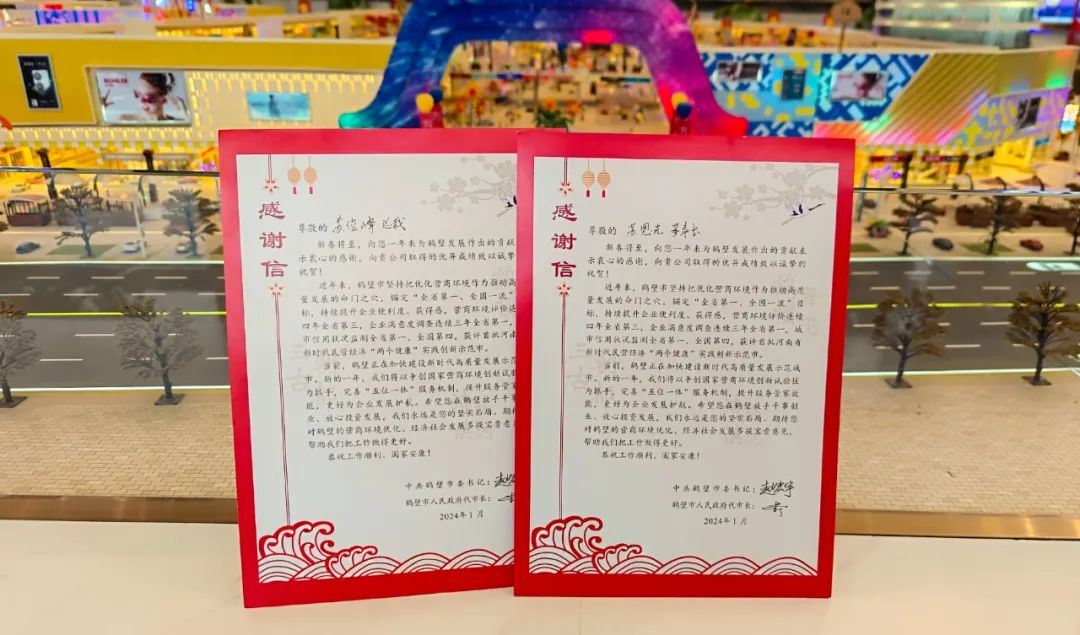 KOHLER
感谢信
尊敬的 总裁
新春将至，向您一年来为鹤壁发展作出的贡献
示衷心的感谢，向贵公司取得的优异成绩致以诚挚
祝贺！
近年来，鹤壁市坚持把优化营商环境作为推动高
量发展的命门之穴，锚定“全省第一、全国一流”
标，持续提升企业便利度、获得感，营商环境评价连
四年全省第三，企业满意度调查连续三年全省第一，
市信用状况监测全省第一、全国第四，获评首批河南
新时代民营经济“两个健康”实践创新示范市。
当前，鹤壁正在加快建设新时代高质量发展示范
市。新的一年，我们将以争创国家营商环境创新试验
为抓手，完善“五位一体”服务机制，提升服务管家
能，更好为企业发展护航。希望您在鹤壁放手干事
业、放心投资发展，我们永远是您的坚实后盾。期待
对鹤壁的营商环境优化、经济社会发展多提宝贵意见
帮助我们把工作做得更好。
恭祝工作顺利、阖家安康！
中共鹤壁市委书记：
鹤壁市人民政府代市长：
2024年1月
感谢信
尊敬的 董事长
新春将至，向您一年来为鹤壁发展作出的贡献表
示衷心的感谢，向贵公司取得的优异成绩致以诚挚的
祝贺！
近年来，鹤壁市坚持把优化营商环境作为推动高质
量发展的命门之穴，锚定“全省第一、全国一流”目
标，持续提升企业便利度、获得感，营商环境评价连续
四年全省第三，企业满意度调查连续三年全省第一，城
市信用状况监测全省第一、全国第四，获评首批河南省
新时代民营经济“两个健康”实践创新示范市。
当前，鹤壁正在加快建设新时代高质量发展示范城
市。新的一年，我们将以争创国家营商环境创新试验区
为抓手，完善“五位一体”服务机制，提升服务管家效
能，更好为企业发展护航。希望您在鹤壁放手干事创
业、放心投资发展，我们永远是您的坚实后盾。期待您
对鹤壁的营商环境优化、经济社会发展多提宝贵意见，
帮助我们把工作做得更好。
恭祝工作顺利、阖家安康！
中共鹤壁市委书记：
鹤壁市人民政府代市长：
2024年1月